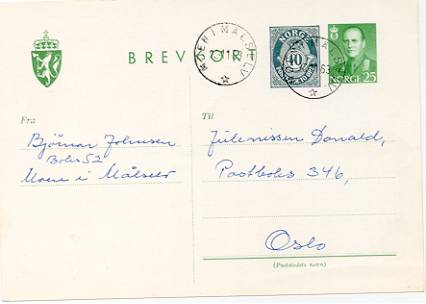 BREVKORT
MOEN I MÅLSELV
NORGE
10
NORGE 25
Fra
Björnar Johnsen
Boks 52
Moen i Målselv
Til
Julenissen Donald,
Postboks 346,
Oslo
(Poststedets navn)